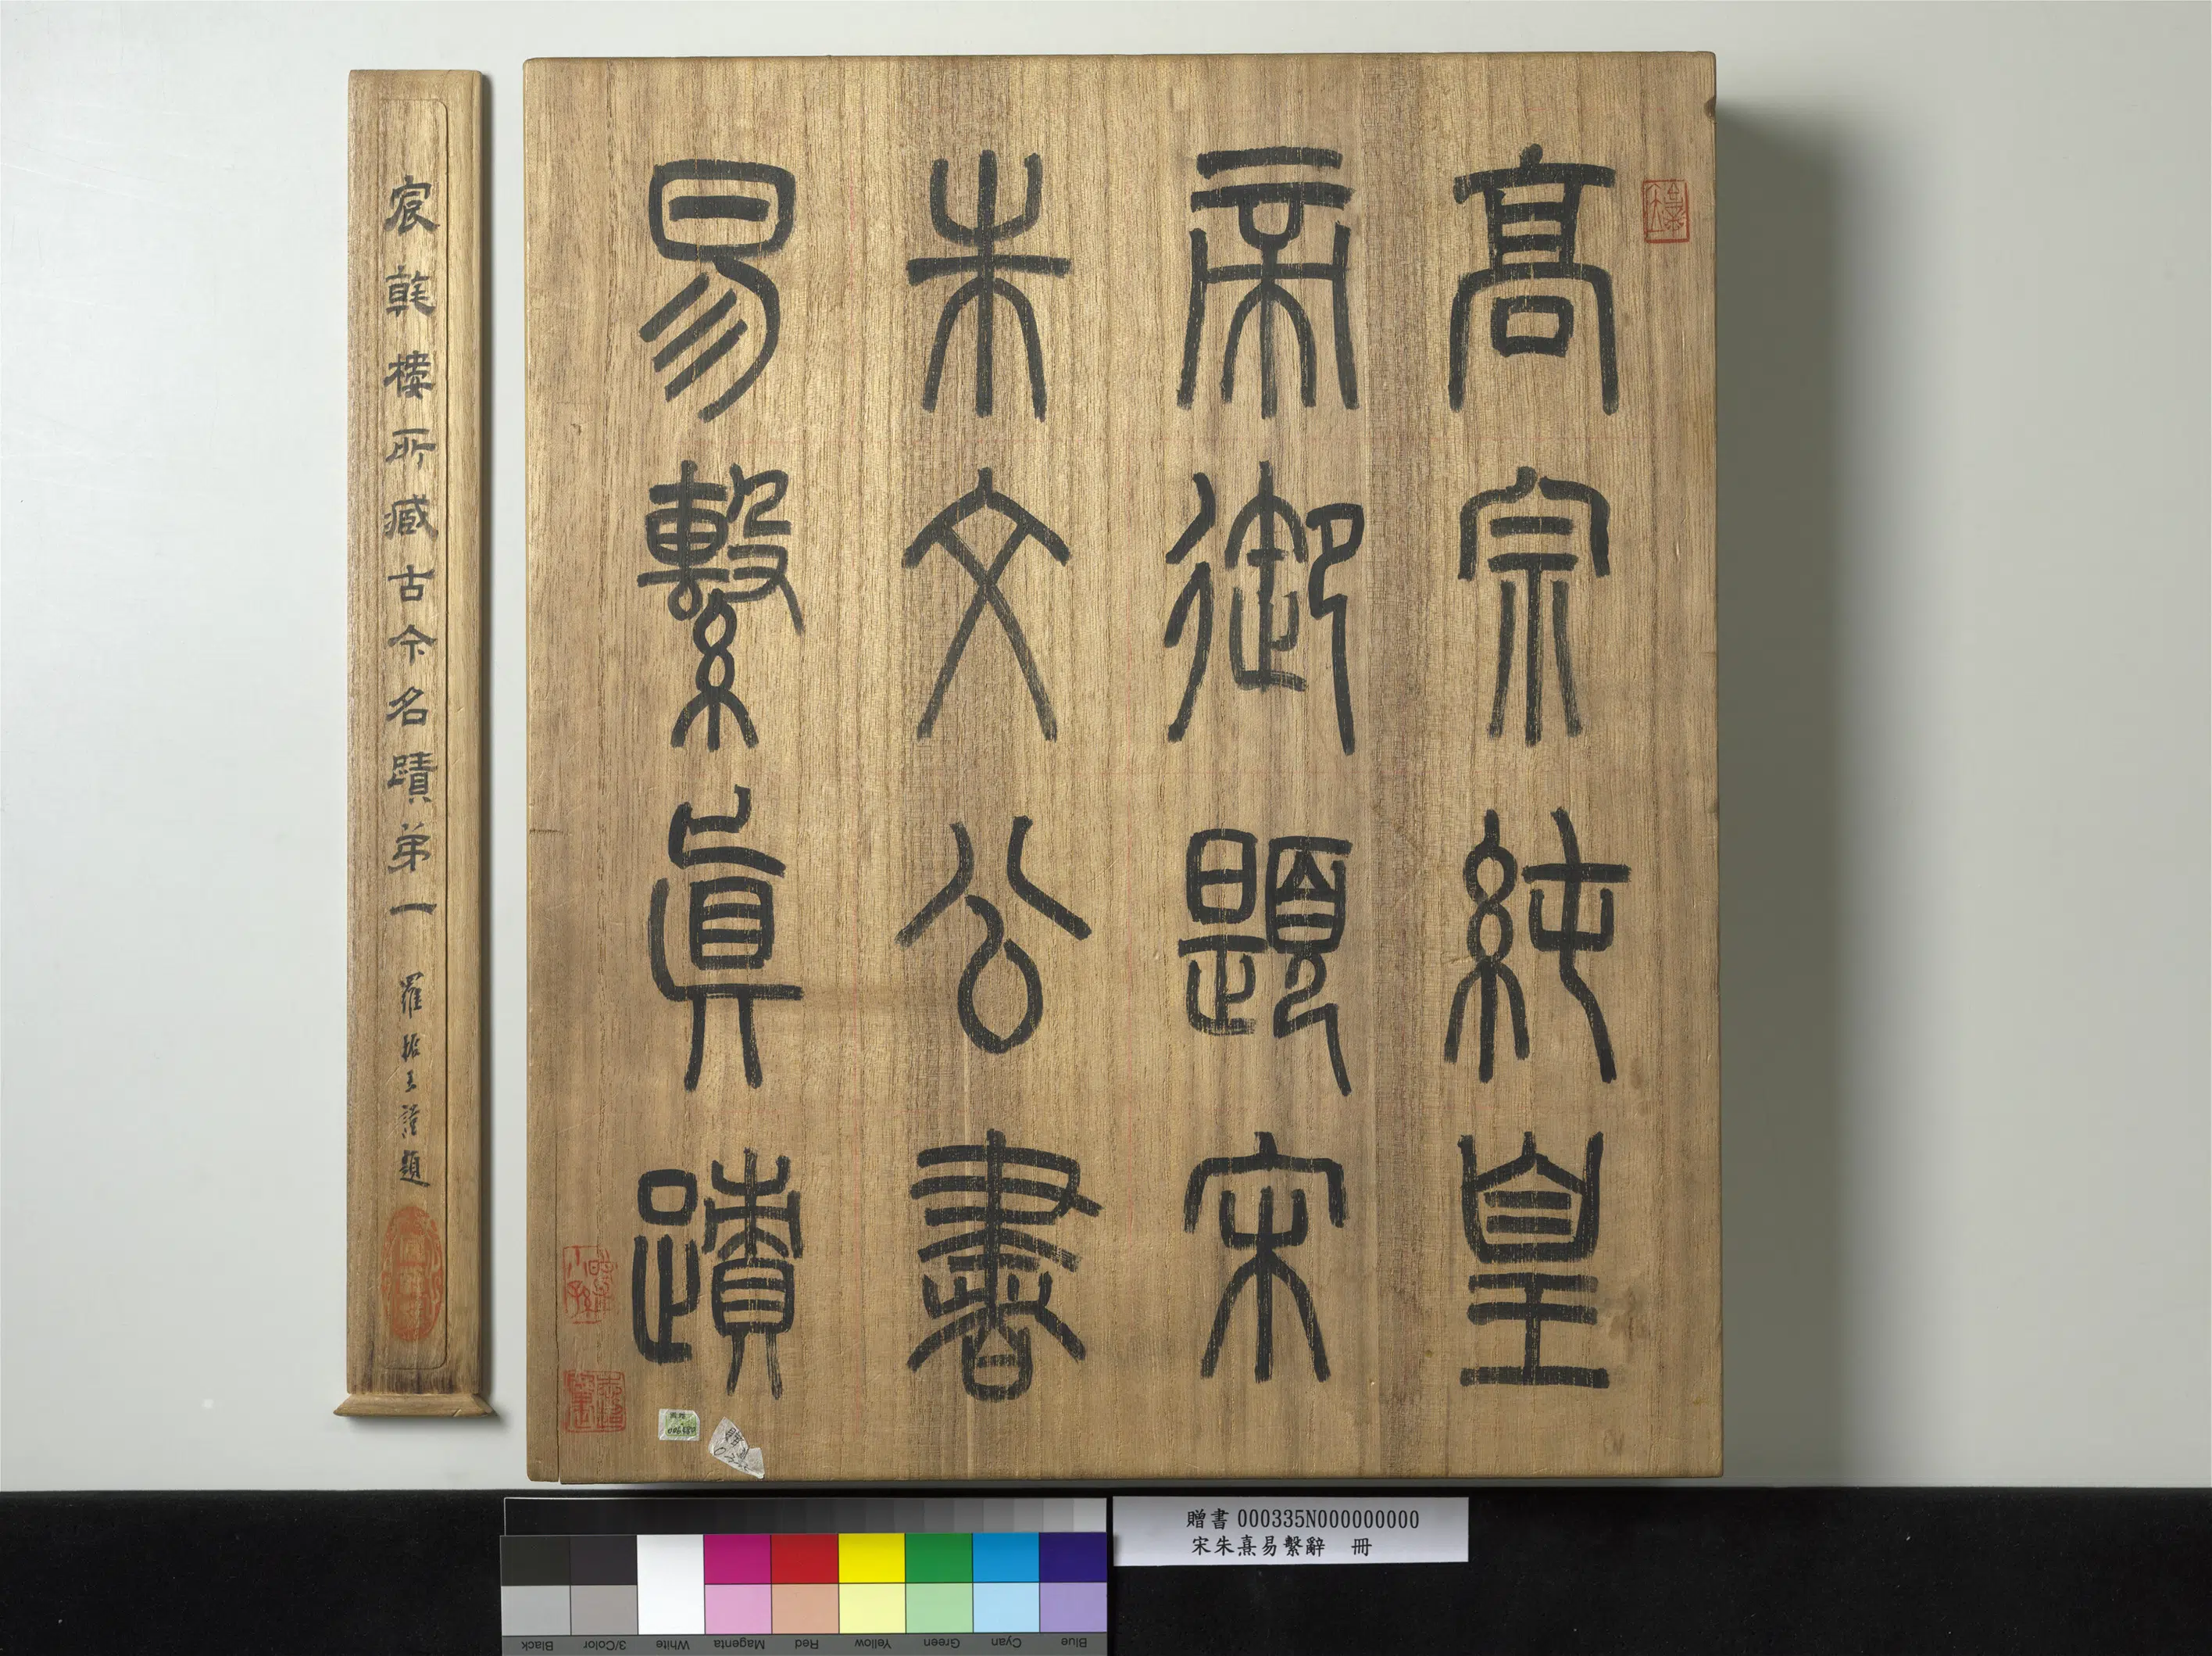 高宗純皇
帝御題宋
朱文公書
易繫真蹟
宸翰樓所藏古今名蹟弟一
羅振玉謹題
贈書 000335N000000000
宋朱熹易繫辭 冊
Black
3/Color
White
Magenta
Red
Yellow
Green
Cyan
Blue